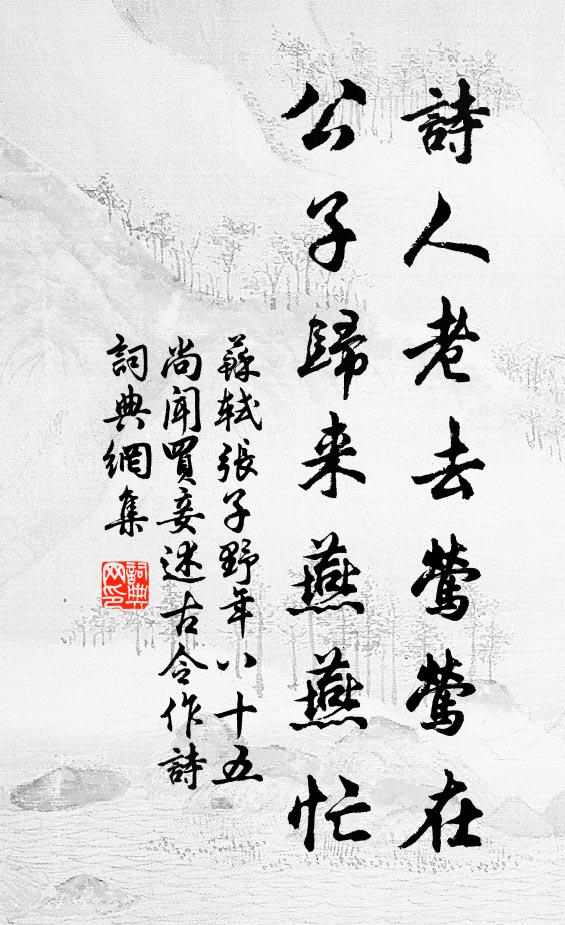 詩人老去鶯鶯在
公子歸来燕燕忙
蘇軾張子野年八十五
尚聞買妾述古令作詩
詞典網集
詞典
网印